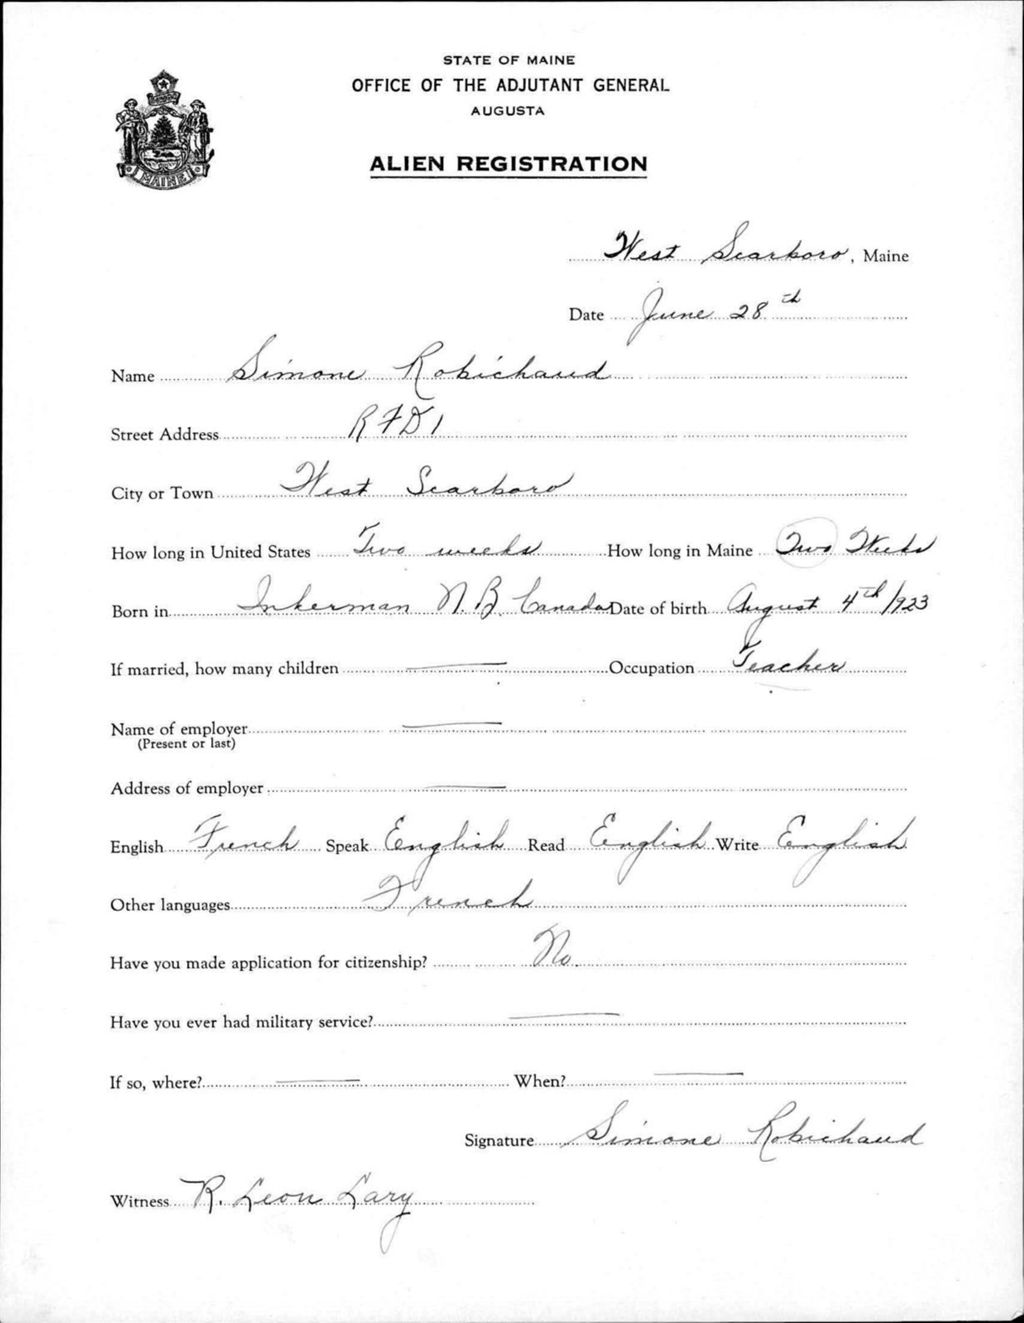 STATE OF MAINE
OFFICE OF THE ADJUTANT GENERAL
AUGUSTA
MAINE
ALIEN REGISTRATION
West Scarboro, Maine
Date June 28th
Name Simone Robichaud
Street Address RFD1
City or Town West Scarboro
How long in United States Two weeks How long in Maine Two Weeks
Born in Inkerman N.B. Canada Date of birth August 4th/1923
If married, how many children — Occupation Teacher
Name of employer —
(Present or last)
Address of employer —
English French Speak English Read English Write English
Other languages French
Have you made application for citizenship? No.
Have you ever had military service? —
If so, where? — When? —
Signature Simone Robichaud
Witness R. Leon Lary